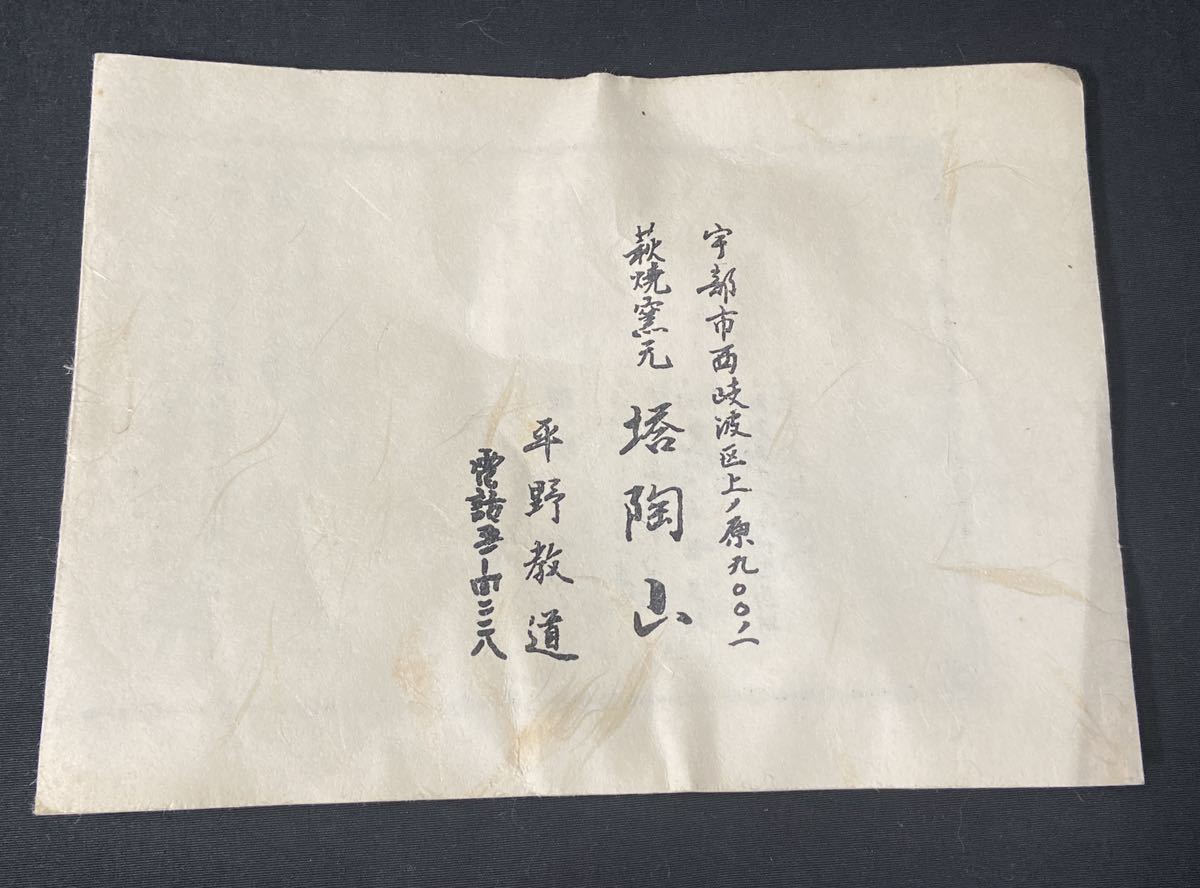 宇部市西岐波区上ノ原九〇〇ノ一
萩焼窯元 塔陶山
平野教道
電話